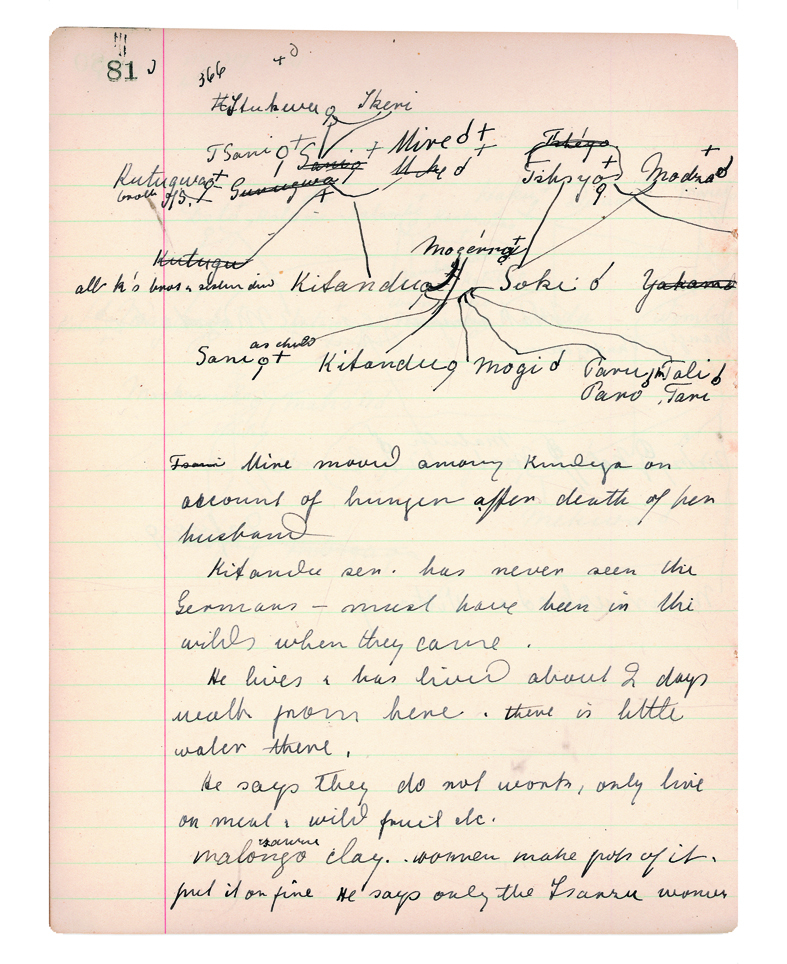 81
366
Ikeri
Tsani ♀ + Mire ♂ +
Modza ♂ +
Kutugu
all K's bros & sisters died Kitandu Soki ♂ Yakama
as child
Sani ♀ + Kitandu ♀ Mogi ♂ Paru Tali ♂
Tari
Tsani Mire moved among Kindega on
account of hunger after death of her
husband
Kitandu sen. has never seen the
Germans – must have been in the
wilds when they came.
He lives & has lived about 2 days
walk from here. there is little
water there.
He says they do not work, only live
on meat & wild fruit etc.
malongo clay. women make pots of it.
put it on fire He says only the Isanzu women